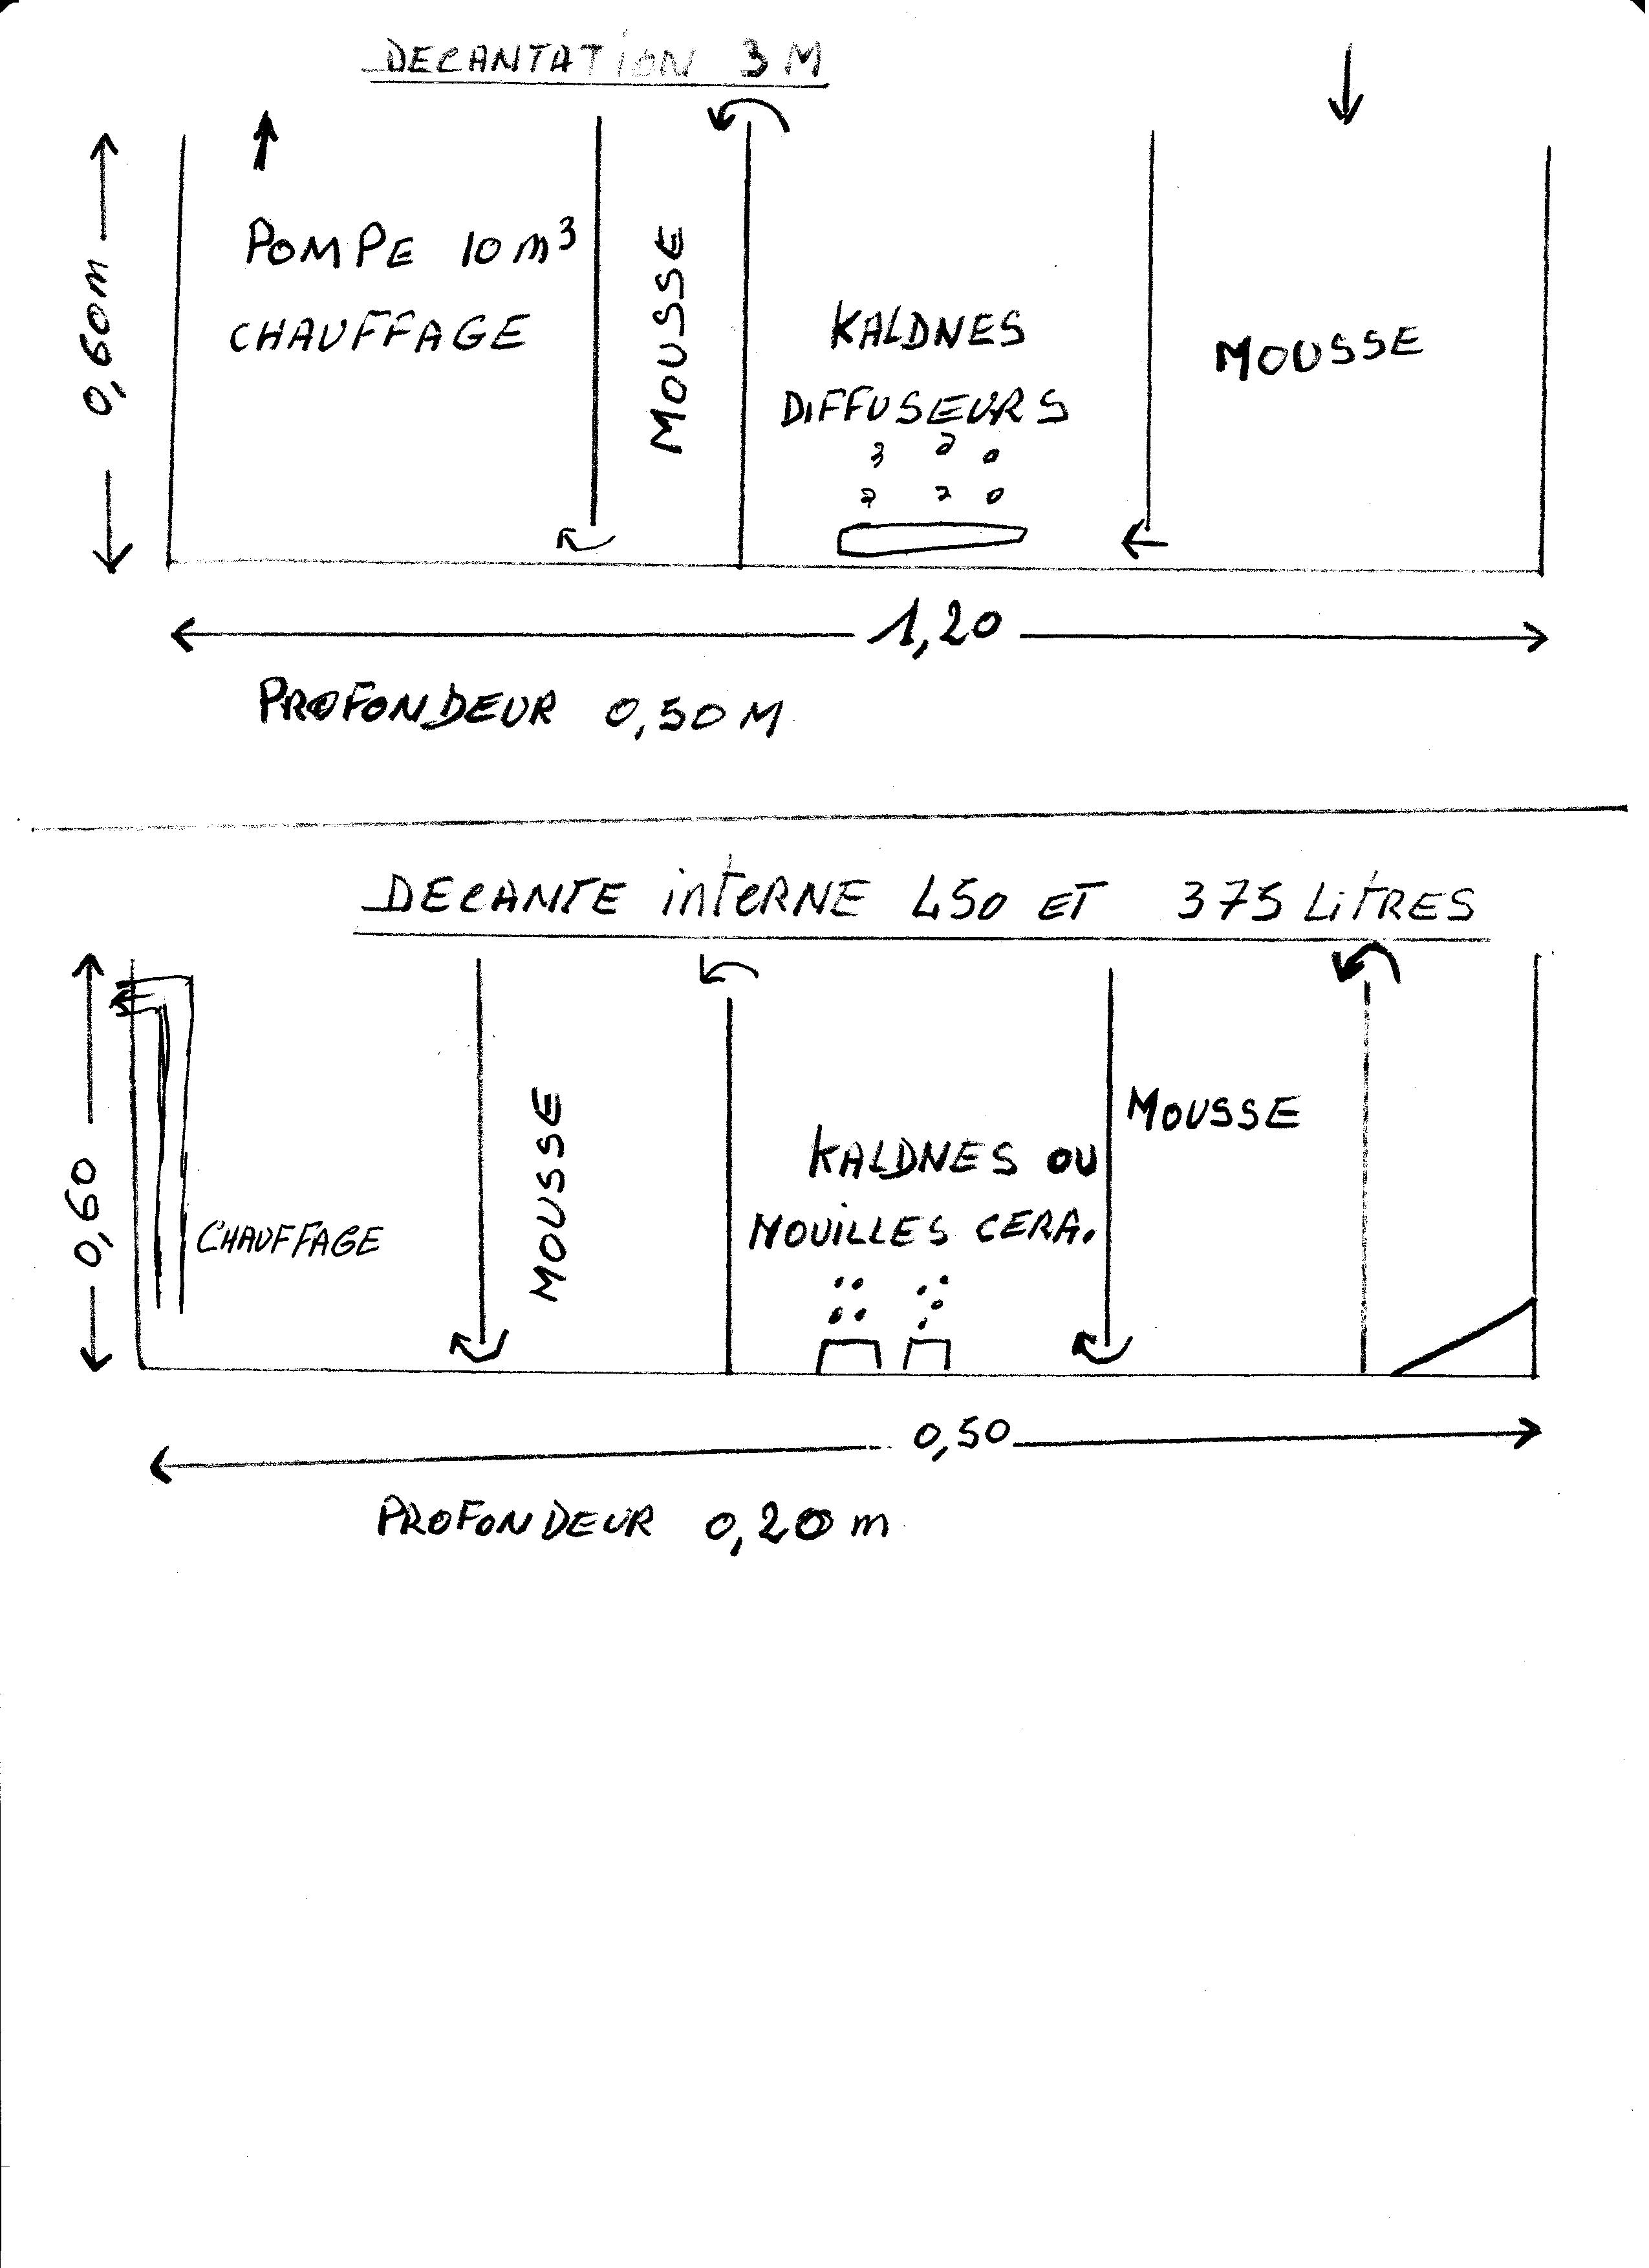 DECANTATION 3 M
0,60m
POMPE 10 m³
CHAUFFAGE
MOUSSE
KALDNES
DIFFUSEURS
MOUSSE
1,20
PROFONDEUR 0,50 M
DECANTE interNE 450 ET 375 LiTRES
0,60
CHAUFFAGE
MOUSSE
KALDNES OU
NOUILLES CERA.
MOUSSE
0,50
PROFONDEUR 0,20 m